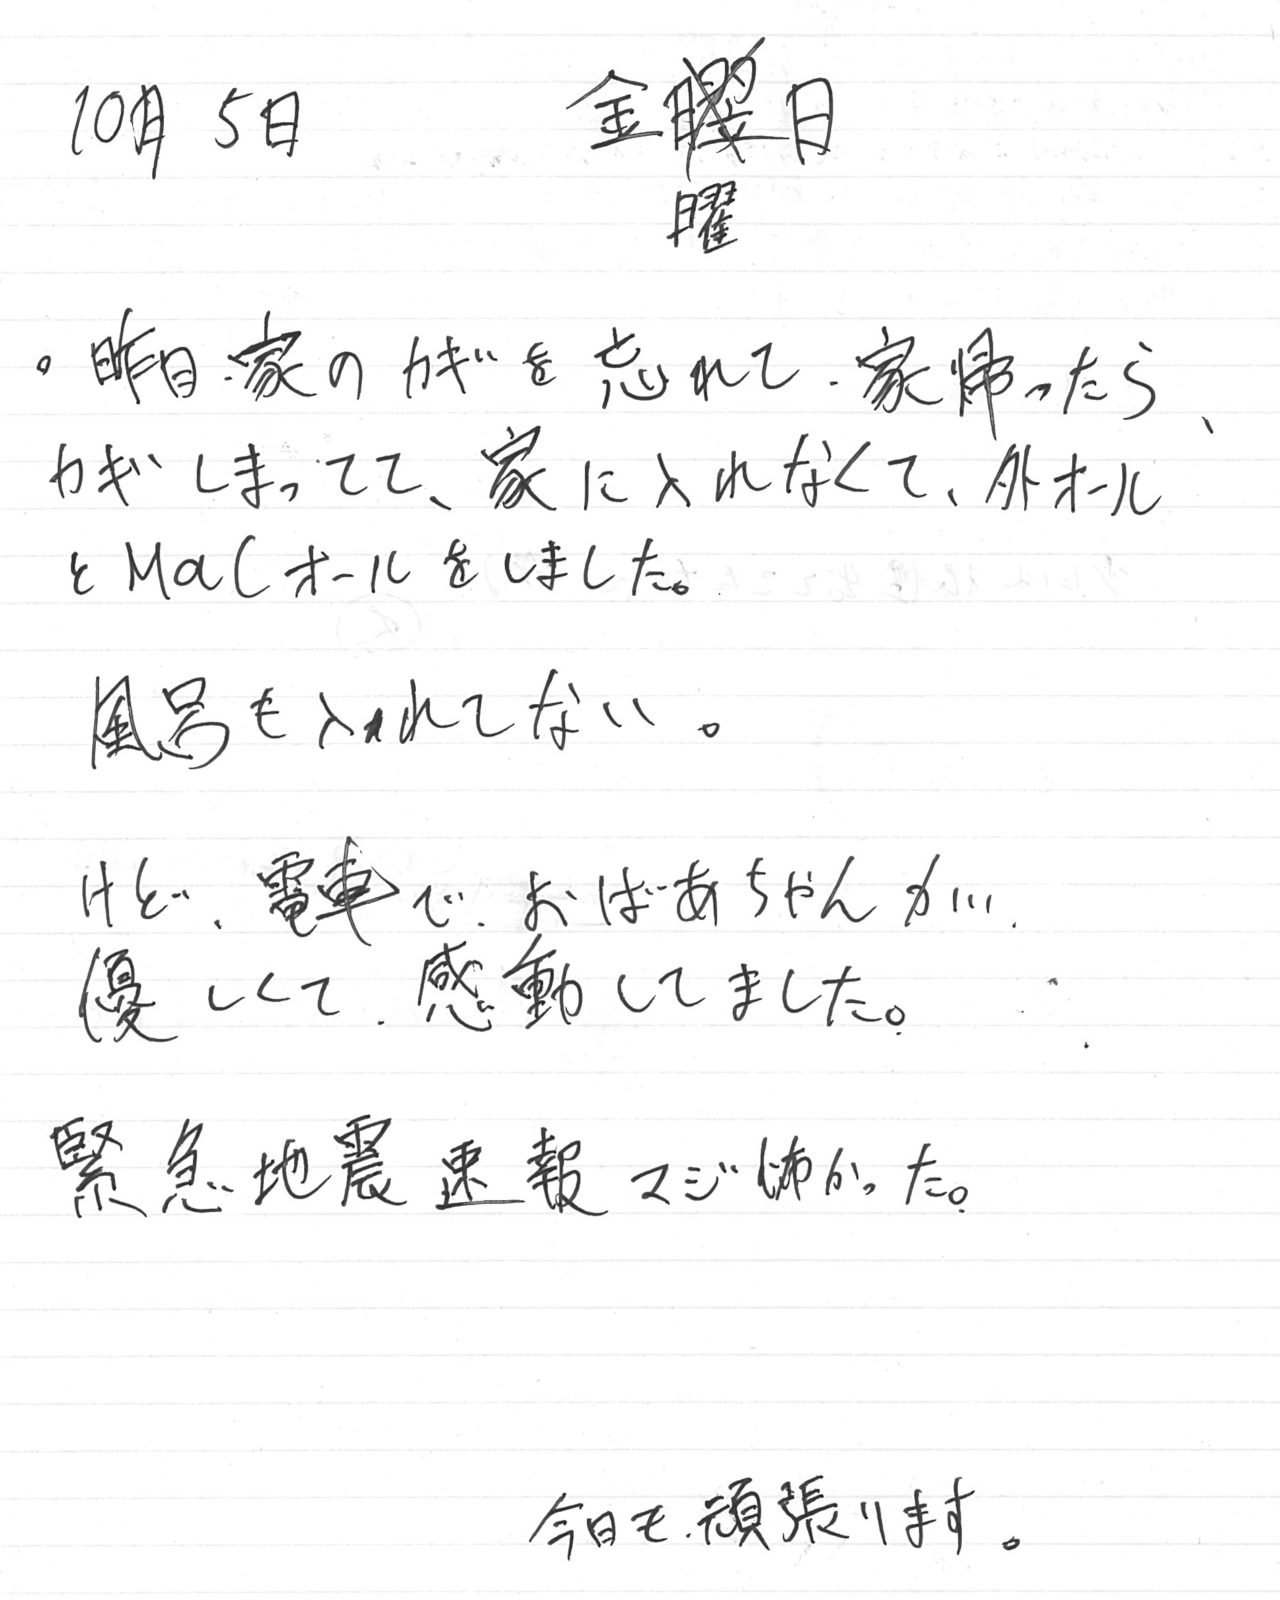 10月 5日 金曜日
曜
。昨日、家のカギを忘れて、家帰ったら、
カギしまってて、家に入れなくて、外オール
とMaCオールをしました。
風呂も入れてない。
けど、電車で、おばあちゃんが…
優しくて、感動してました。
緊急地震速報マジ怖かった。
今日も、頑張ります。